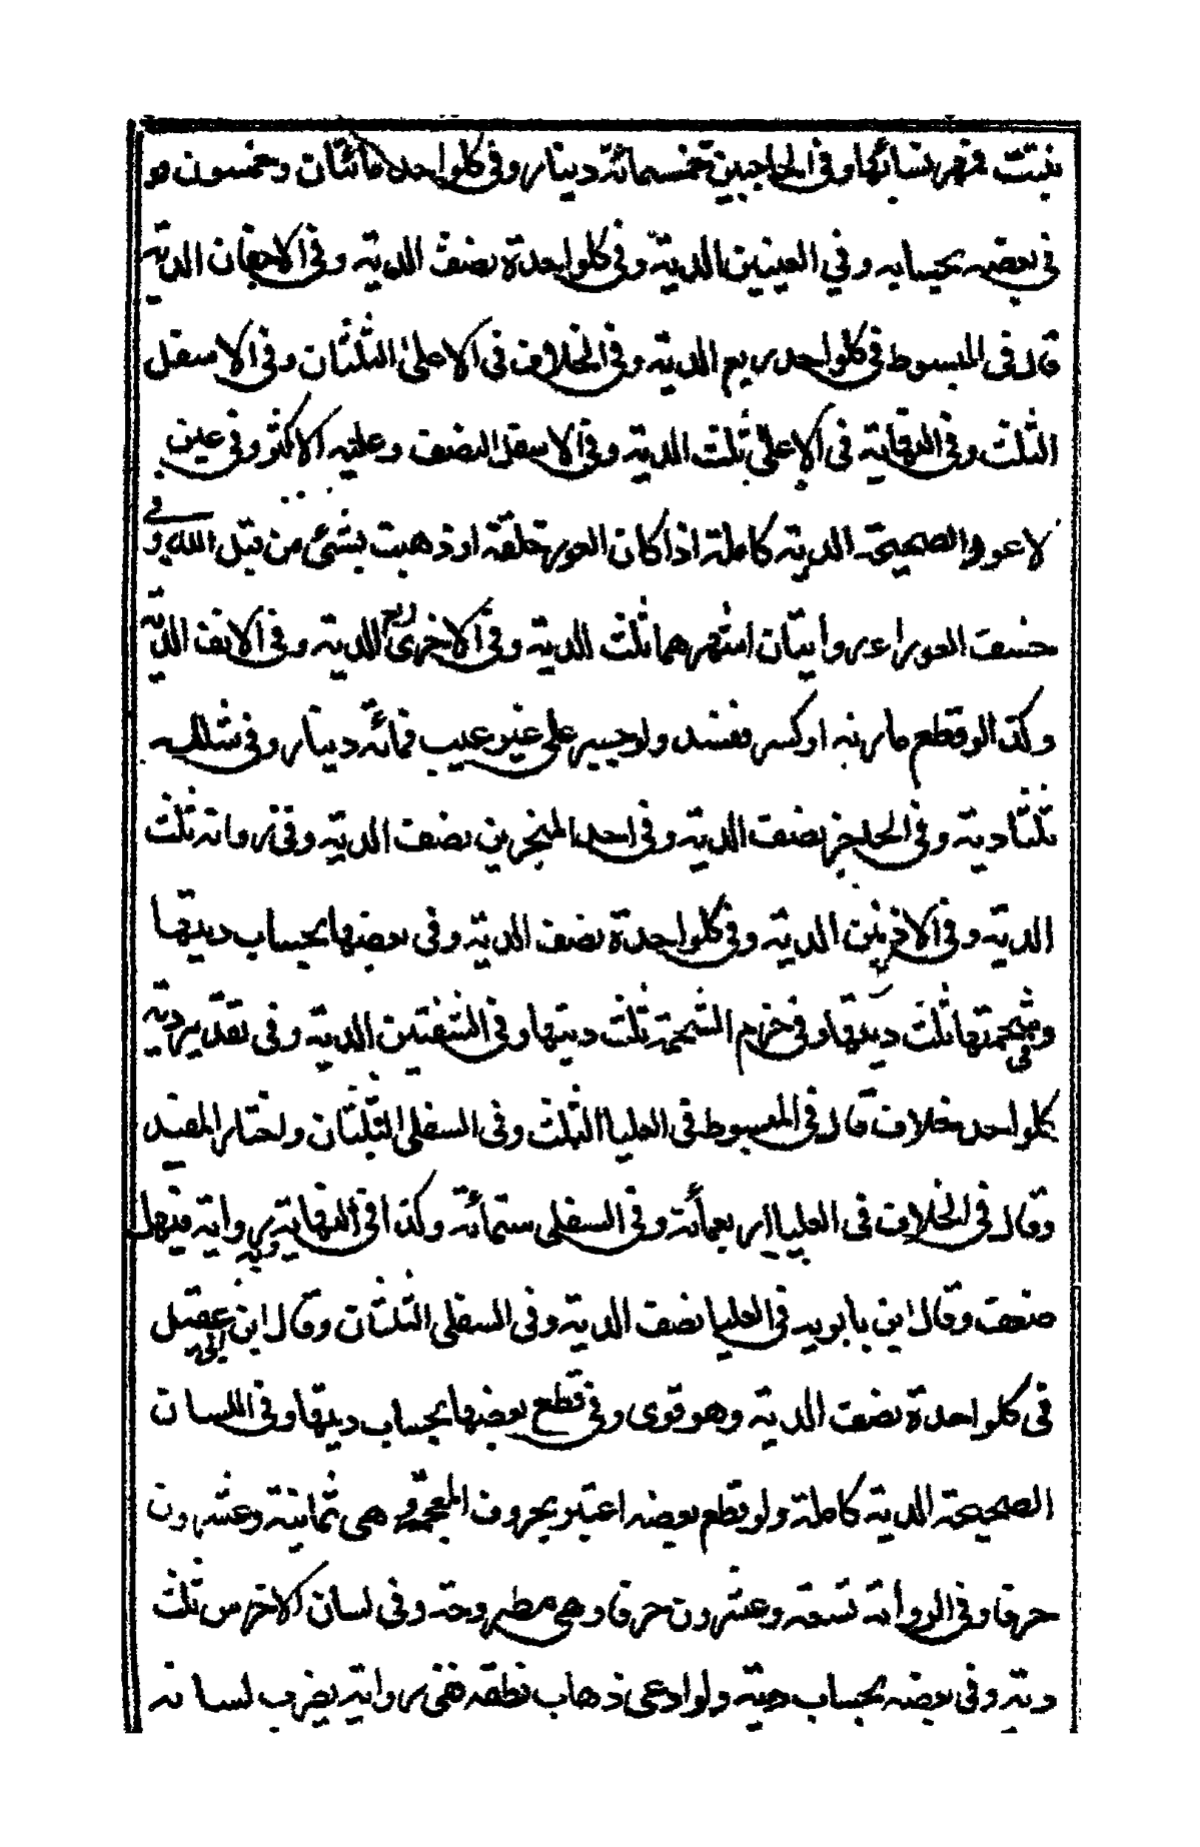 نبتت فمهر نسائها وفى الحاجبين خمسمائة دينار وفى كل واحد مائتان وخمسون وو
فى بعضه بحسابه وفي العينين الدية وفى كل واحدة نصف الدية وفى الاجفان الدية
قال فى المبسوط فى كل واحد ربع الدية وفى الخلاف فى الاعلى الثلثان وفى الاسفل
الثلث وفى النهاية فى الاعلى ثلث الدية وفى الاسفل النصف وعليه الاكثر وفى عين
الاعور الصحيحة الدية كاملة اذا كان العور خلقة او ذهبت بشئ من قبل الله وفى
خسف العوراء روايتان اشهرهما ثلث الدية وفى الاخرى ربع الدية وفى الانف الدية
وكذا لو قطع مارنه او كسر ففسد ولو جبر على غير عيب فمائة دينار وفى شلله
ثلثا دية وفى الحاجز نصف الدية وفى احد المنخرين نصف الدية وفى رواية ثلث
الدية وفى الاذنين الدية وفى كل واحدة نصف الدية وفى بعضها بحساب ديتها
وفى شحمتها ثلث ديتها وفى خرم الشحمة ثلث ديتها وفى الشفتين الدية وفى تقدير دية
كل واحد خلاف قال فى المبسوط فى العليا الثلث وفى السفلى الثلثان واختار المفيد
وقال فى الخلاف فى العليا اربعمائة وفى السفلى ستمائة وكذا فى النهاية وبه رواية فيها
ضعف وقال ابن بابويه فى العليا نصف الدية وفى السفلى الثلثان وقال ابن ابى عقيل
فى كل واحدة نصف الدية وهو قوى وفى قطع بعضها بحساب ديتها وفى اللسان
الصحيح الدية كاملة ولو قطع بعضه اعتبر بحروف المعجم وهى ثمانية وعشرون
حرفا وفى الرواية تسعة وعشرون حرفا وهى مطروحة وفى لسان الاخرس ثلث
دية وفى بعضه بحساب ديته ولو ادعى ذهاب نطقه ففى رواية يضرب لسانه